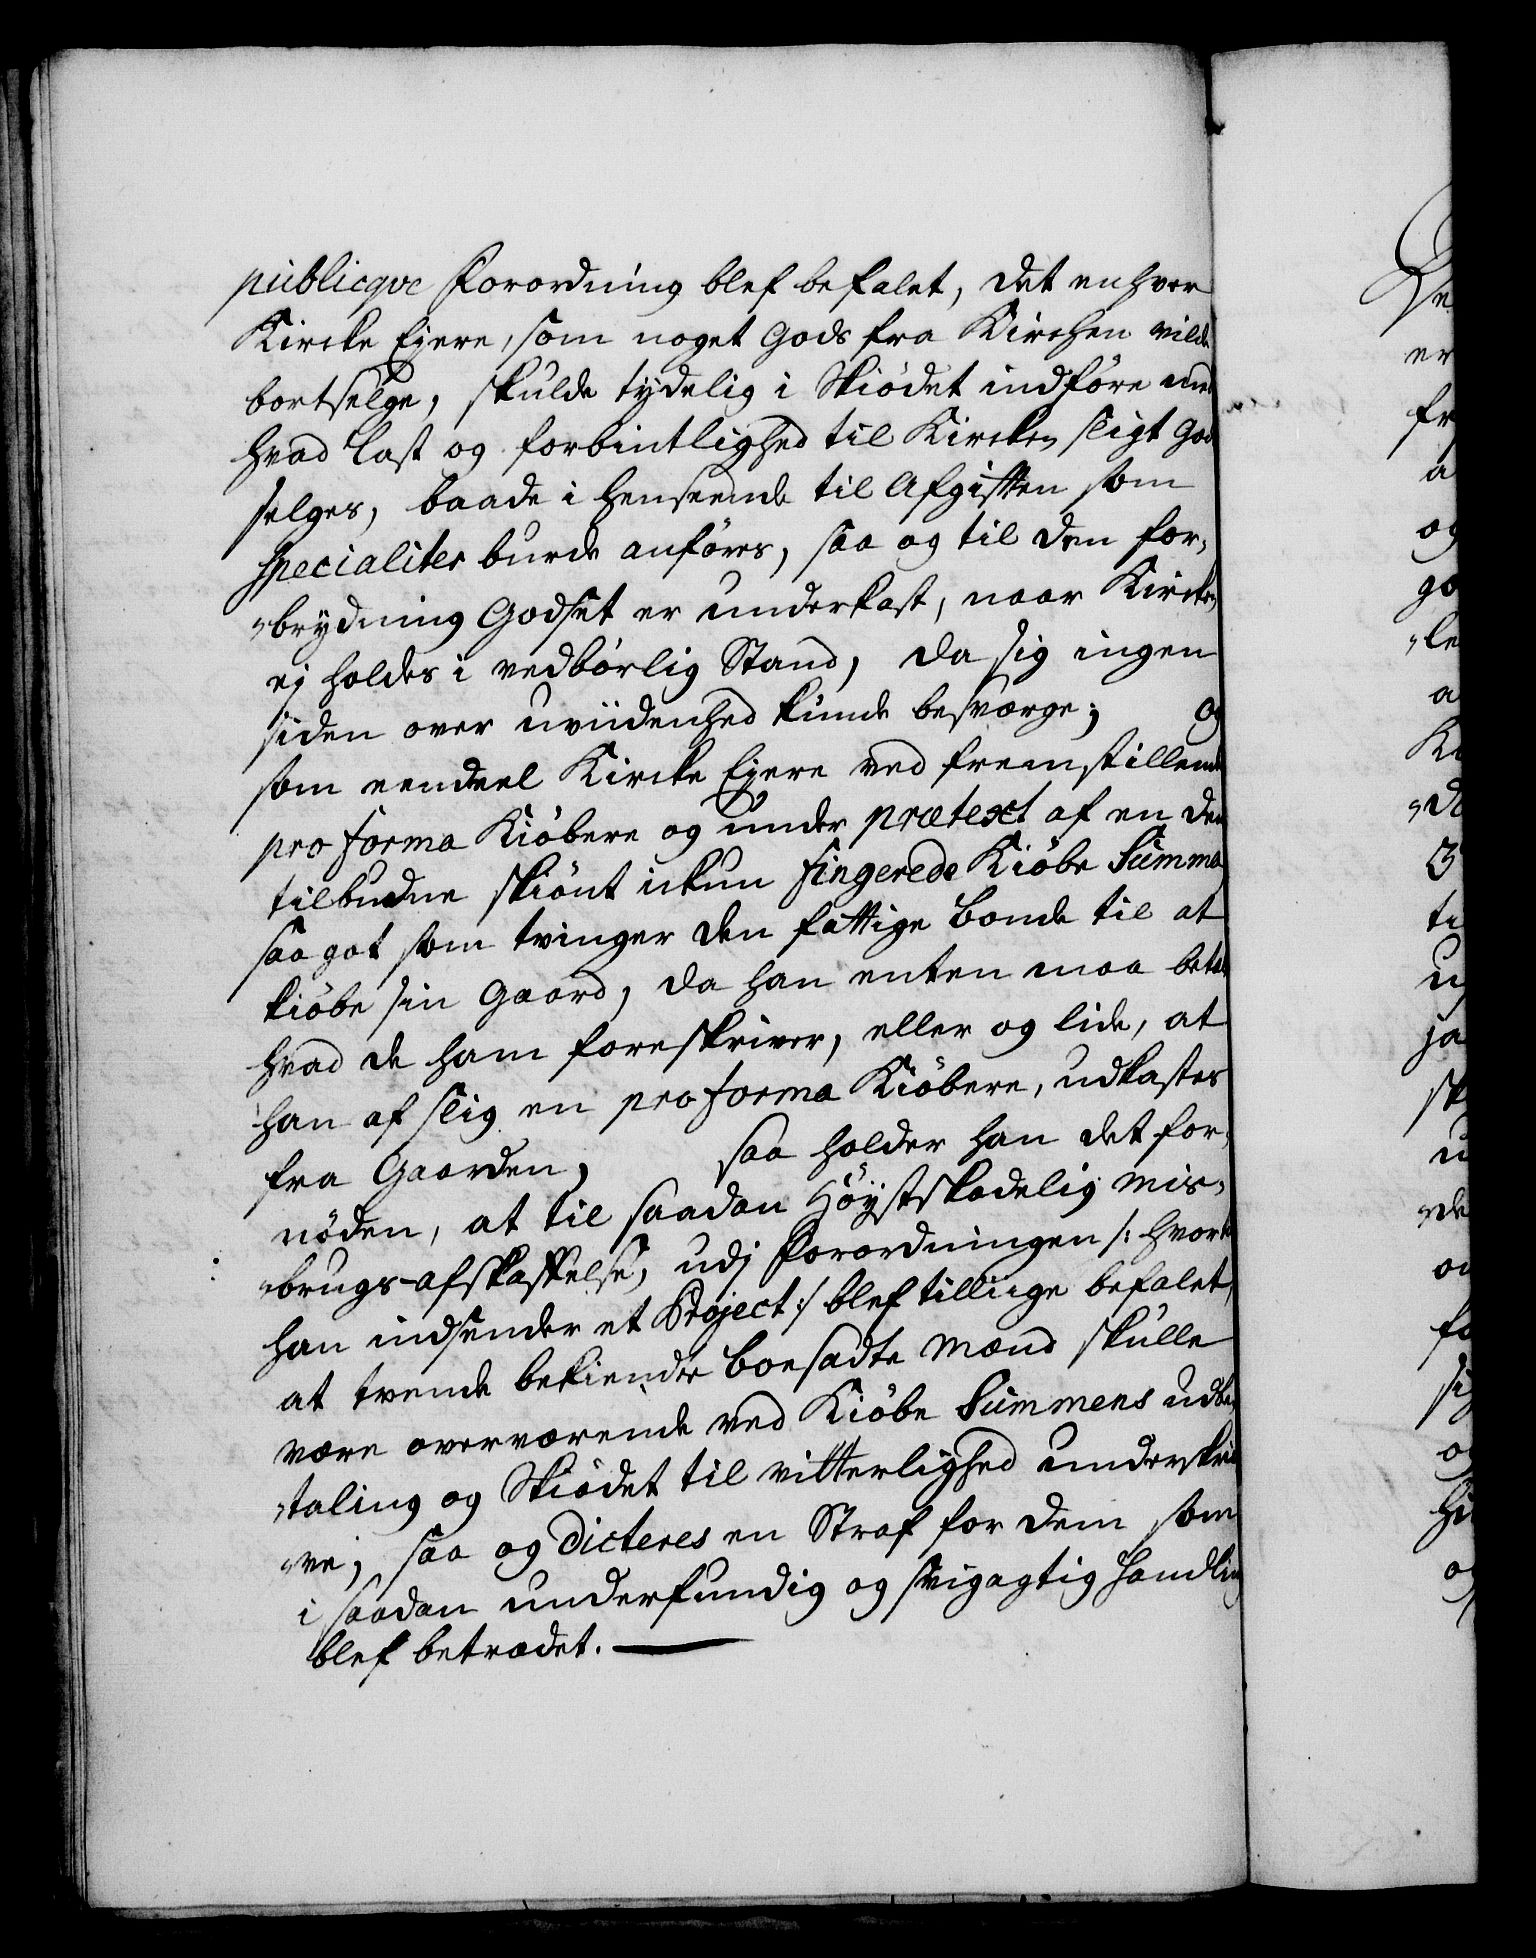 publicqve Forordning blef befalet, det enhver
Kircke Ejere, som noget Gods fra Kirchen vilde
bortselge, skulde tydelig i Skiödet indföre med
hvad Last og forbintlighed til Kircken sligt God
selges, baade i henseende til Afgiften som
specialiter burde anföres, saa og til den for„
„brydning Godset er underkast, naar Kircken
ej holdes i vedbörlig Stand, da sig ingen
siden over uviidenhed kunde besværge; og
som eendeel Kircke Ejere ved fremstillende
pro forma Kiöbere og under prætext af en den
tilbudne skiönt ickun fingerede Kiöbe Summa
saa got som tvinger den fattige Bonde til at
kiöbe sin Gaard, da han enten maa betale
hvad de ham foreskriver, eller og lide, at
han af slig en pro forma Kiöbere, udkastes
fra Gaarden, saa holder han det for„
nöden, at til saadan Höystskadelig mis„
„brugs-afskaffelse, udj Forordningen /: hvortil
han indsender et Project :/ blef tilliige befalet,
at tvende bekiendte Boesadte Mænd skulle
være overværende ved Kiöbe Summens udbe„
„taling og Skiödet til vitterlighed underskri„
„ve, saa og dicteres en Straf for dem som
i saadan underfundig og svigagtig handling
blef betrædet.